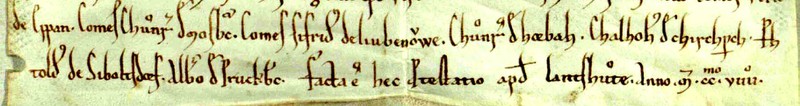 de Eppan. Comes Chůnr̄ d' mosb̄c. Comes Sifrid' de liubenowe. Chůnr̄ d' hœbah. Chalhoh' d' chirchp̄ch. Ber
told' de Sibolts dorf. Alb'o d' Pruckb̄c. facta ē hec Protestatio apd' lantshůte. Anno. m̄. cc. mo viiii.